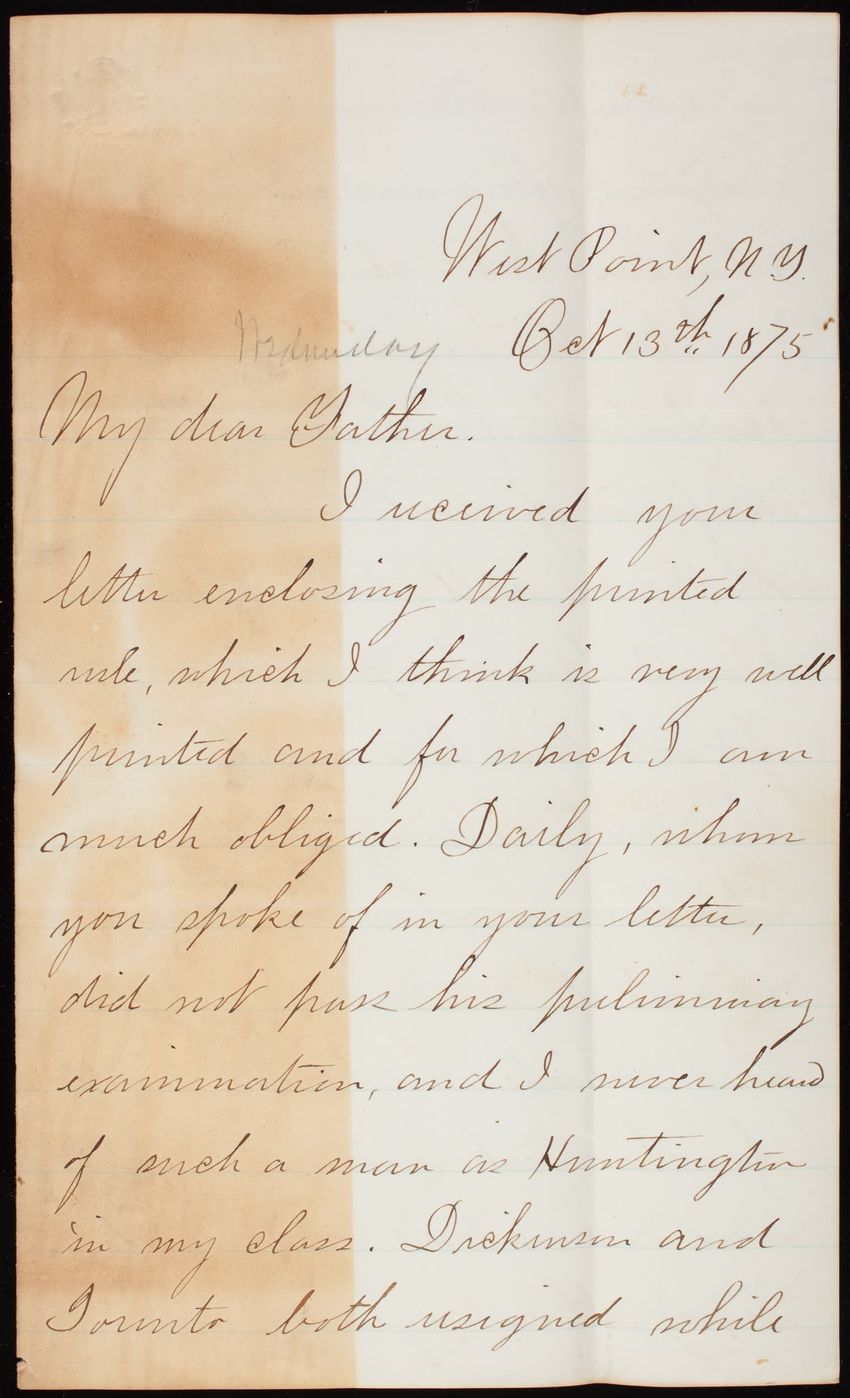 West Point, N.Y.
Wednesday Oct 13th 1875
My dear Father.
I received your
letter enclosing the printed
rule, which I think is very well
printed and for which I am
much obliged. Daily, whom
you spoke of in your letter,
did not pass his preliminary
examination, and I never heard
of such a man as Huntington
in my class. Dickinson and
both resigned while